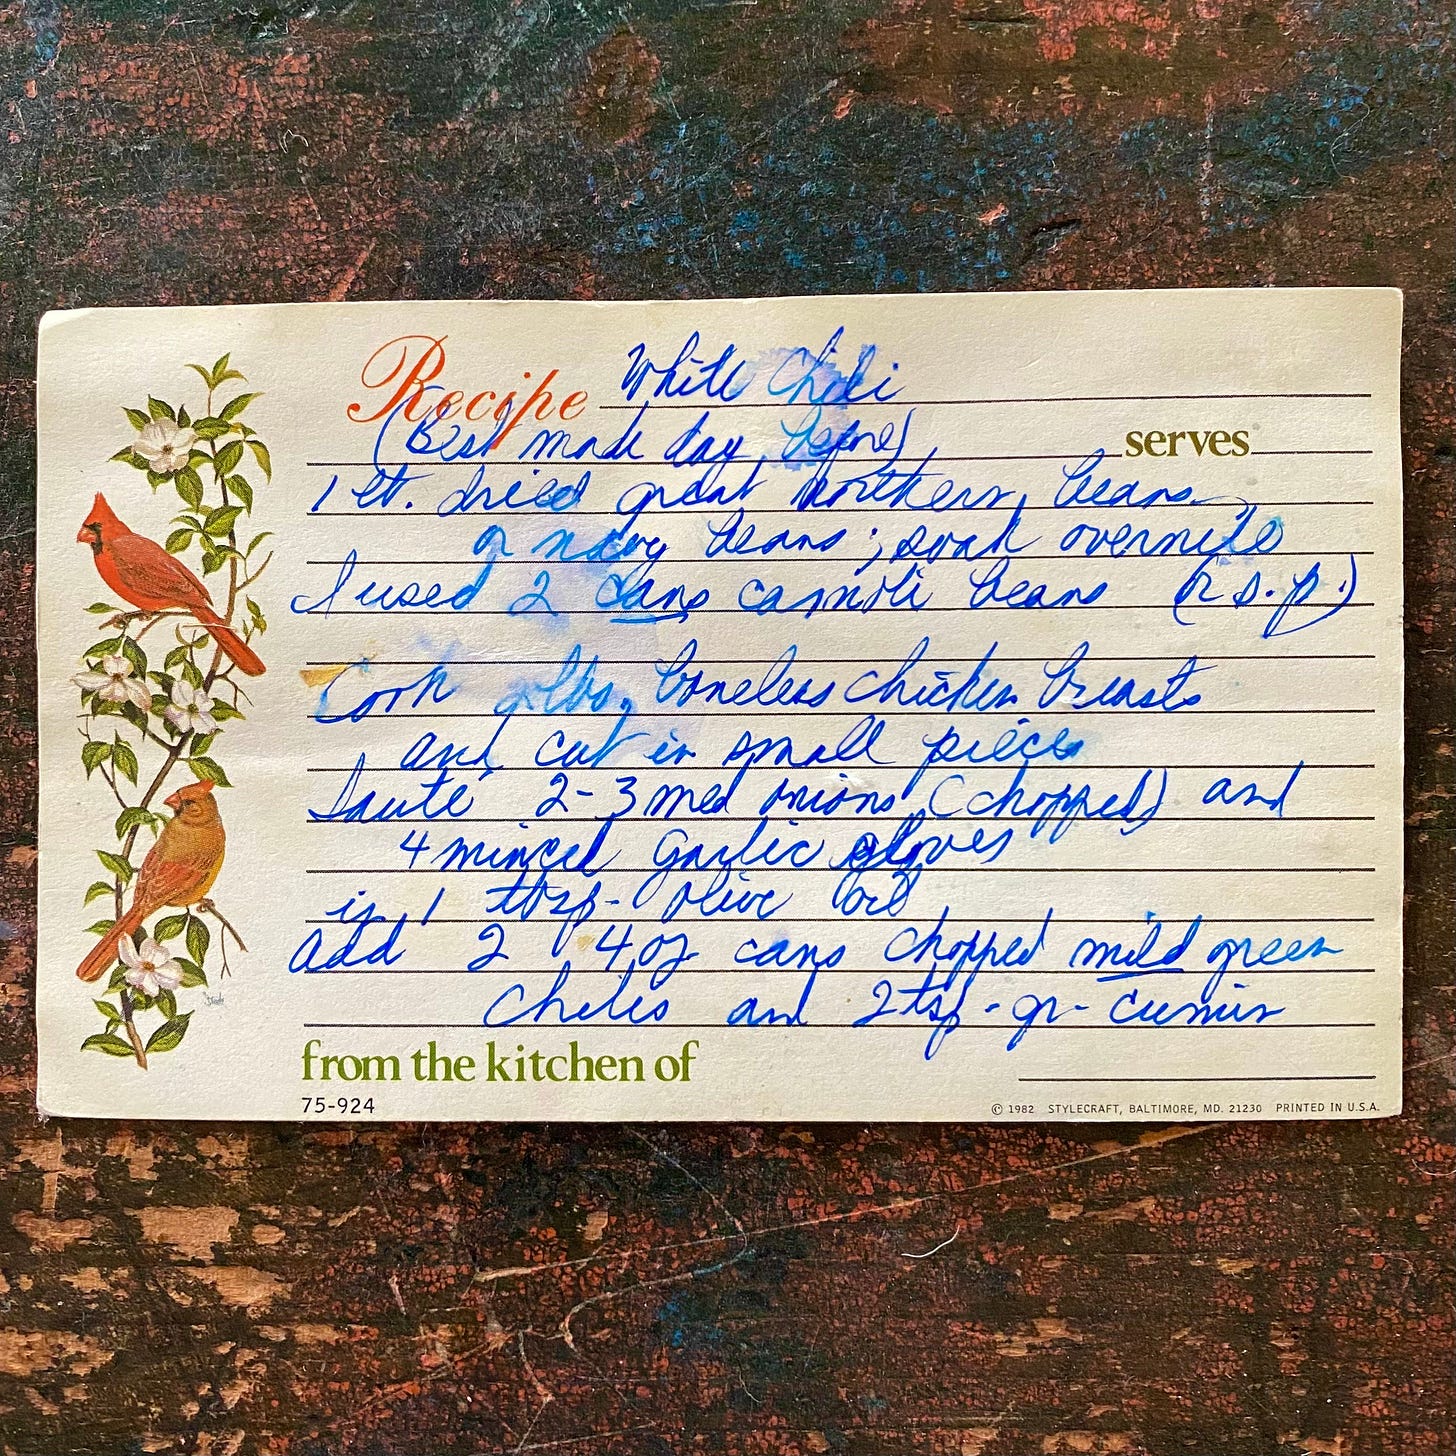 Recipe White Chili
(Best made day before)
serves
1 lb. dried great northern beans
or navy beans; soak overnite
I used 2 cans cannoli beans (r.s.p.)
Cook lbs. boneless chicken breasts
and cut in small pieces
Sauté 2-3 med onions (chopped) and
4 minced garlic cloves
in 1 tbsp. olive oil
add 2 4 oz cans chopped mild green
chiles and 2 tsp - gr - cumin
from the kitchen of
75-924
© 1982 STYLECRAFT, BALTIMORE, MD. 21230 PRINTED IN U.S.A.